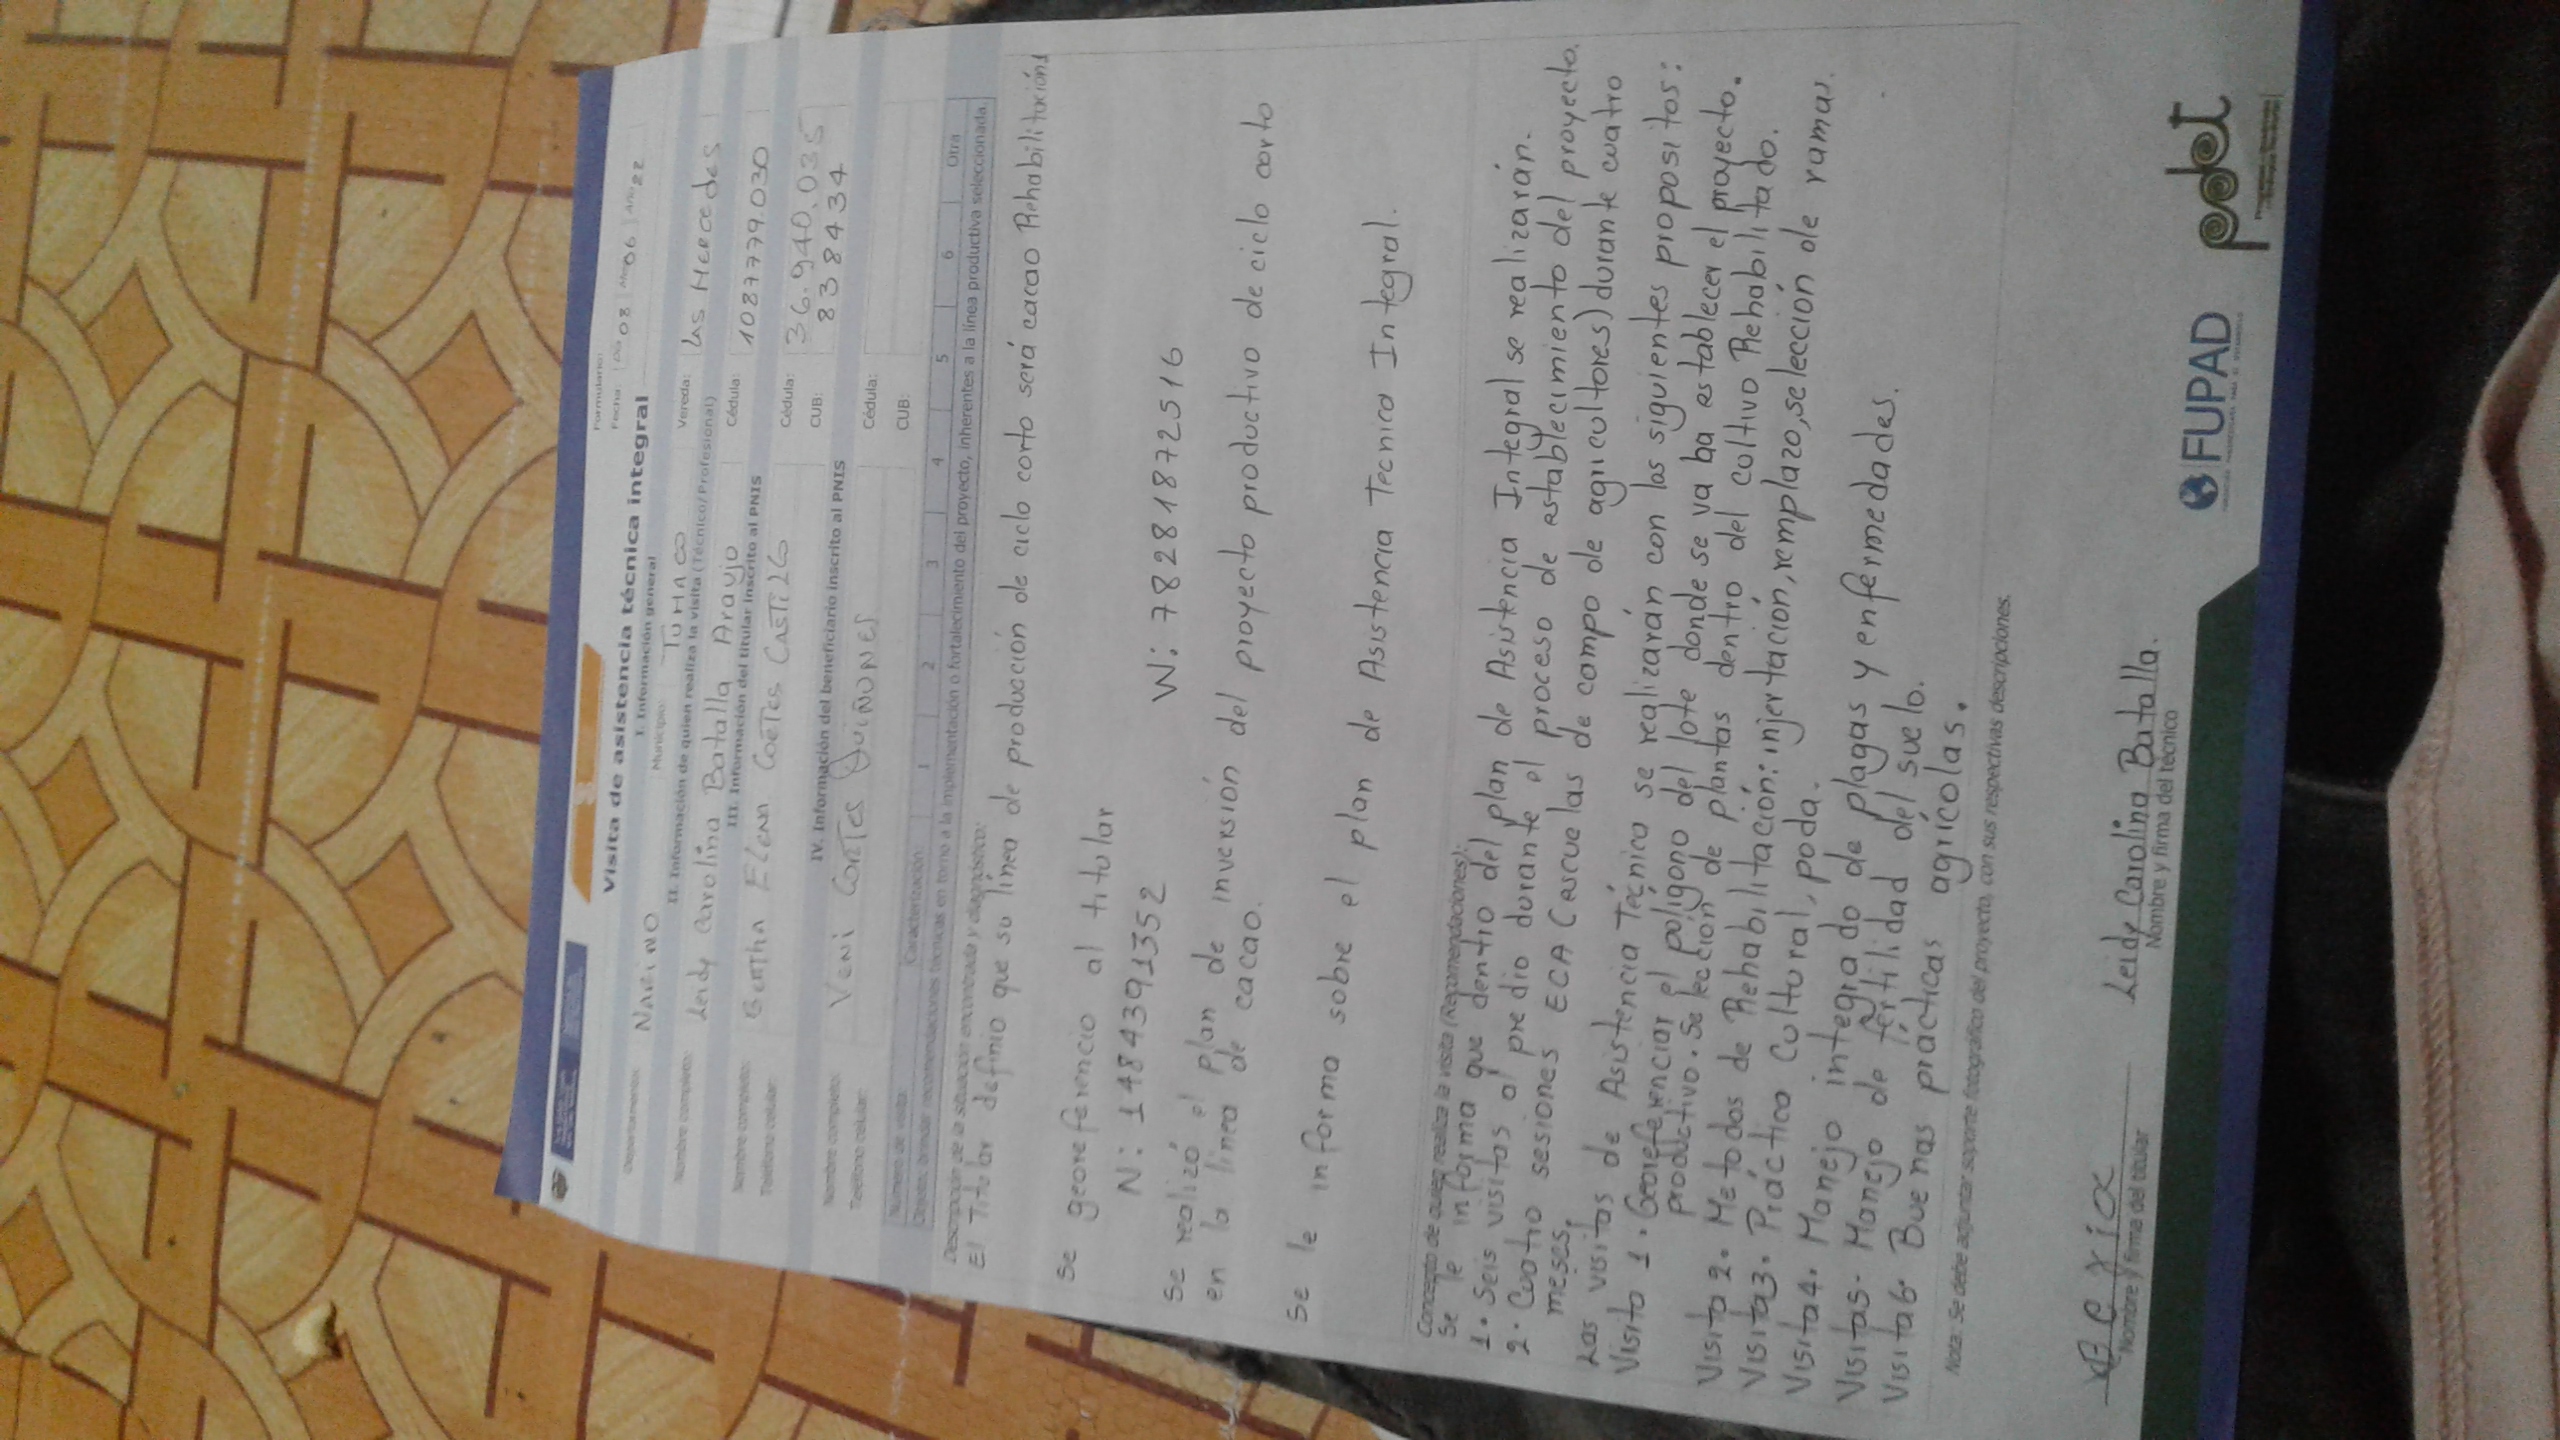 Visita de asistencia técnica integral
Formulario:
Fecha: DD 08 Mes 06 Año 22
I. Información general
Departamento: NARIÑO Municipio: TUMACO Vereda: LAS MERCEDES
II. Información de quien realiza la visita (Técnico/Profesional)
Nombre completo: Leidy Carolina Batalla Araujo Cédula: 1087779.030
III. Información del titular inscrito al PNIS
Nombre completo: BERTHA ELENA CORTES CASTILLO Cédula: 36.940.035
Teléfono celular: CUB: 8384434
IV. Información del beneficiario inscrito al PNIS
Nombre completo: YENI CORTES QUIÑONES Cédula:
Teléfono celular: CUB:
Número de visita: Caracterización 1 2 3 4 5 6 Otra
Objeto: brindar recomendaciones técnicas en torno a la implementación o fortalecimiento del proyecto, inherentes a la línea productiva seleccionada.
Descripción de la situación encontrada y diagnóstico:
El Titular definio que su línea de producción de ciclo corto será cacao Rehabilitación
Se georeferencio al titular
N: 1484391352 W: 78281872516
Se realizó el plan de inversión del proyecto productivo de ciclo corto
en la línea de cacao.
Se le informa sobre el plan de Asistencia Tecnica Integral.
Concepto de quien realiza la visita (Recomendaciones):
Se le informa que dentro del plan de Asistencia Integral se realizarán.
1. Seis visitas al predio durante el proceso de establecimiento del proyecto.
2. Cuatro sesiones ECA (escuelas de campo de agricultores) durante cuatro
meses.
Las visitas de Asistencia Técnica se realizarán con los siguientes propositos:
Visita 1. Georeferenciar el polígono del lote donde se va ba establecer el proyecto.
productivo. Selección de plantas dentro del cultivo Rehabilitado.
Visita 2. Metodos de Rehabilitación: injertación, remplazo, selección de ramas.
Visita3. Práctica Cultural, poda.
Visita4. Manejo integrado de plagas y enfermedades.
Visita5. Manejo de fértilidad del suelo.
Visita6. Buenas prácticas agrícolas.
Nota: Se debe adjuntar soporte fotográfico del proyecto, con sus respectivas descripciones.
Leidy Carolina Batalla.
Nombre y firma del titular Nombre y firma del técnico
FUPAD pdet